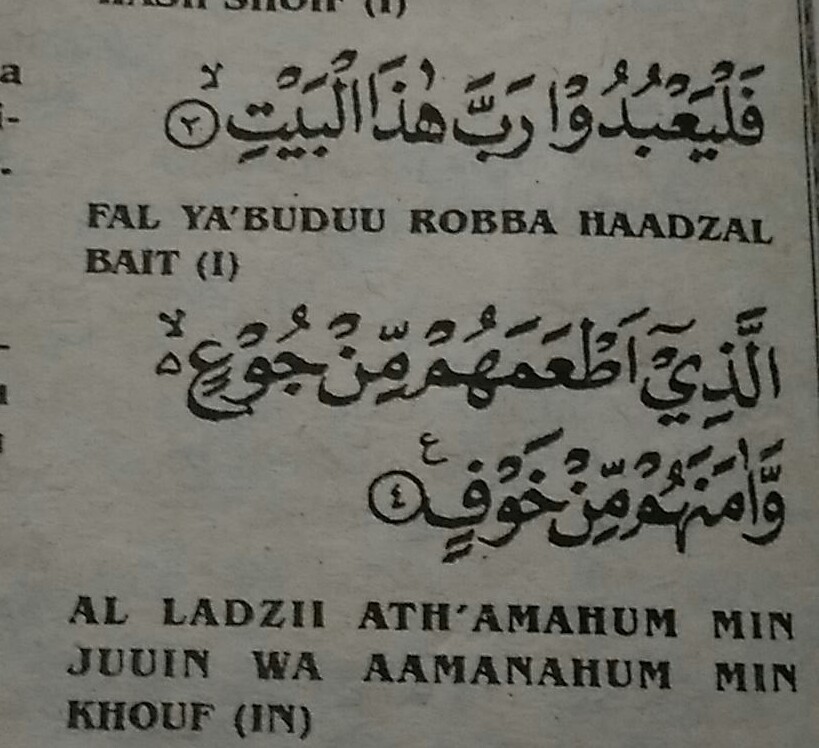 فَلْيَعْبُدُوْا رَبَّ هٰذَا الْبَيْتِۙ ٢
FAL YA'BUDUU ROBBA HAADZAL
BAIT (I)
الَّذِيْٓ اَطْعَمَهُمْ مِّنْ جُوْعٍۙ ە
وَّاٰمَنَهُمْ مِّنْ خَوْفٍ ع ٤
AL LADZII ATH'AMAHUM MIN
JUUIN WA AAMANAHUM MIN
KHOUF (IN)